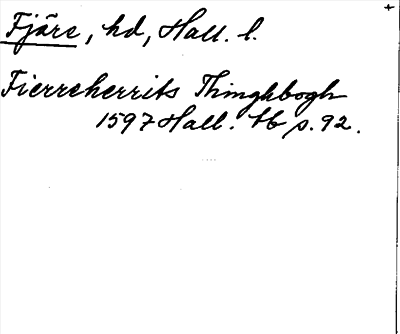 Fjäre, hd, Hall. l.
Fierreherrits Thinghbogh
1597 Hall. tb s. 92.